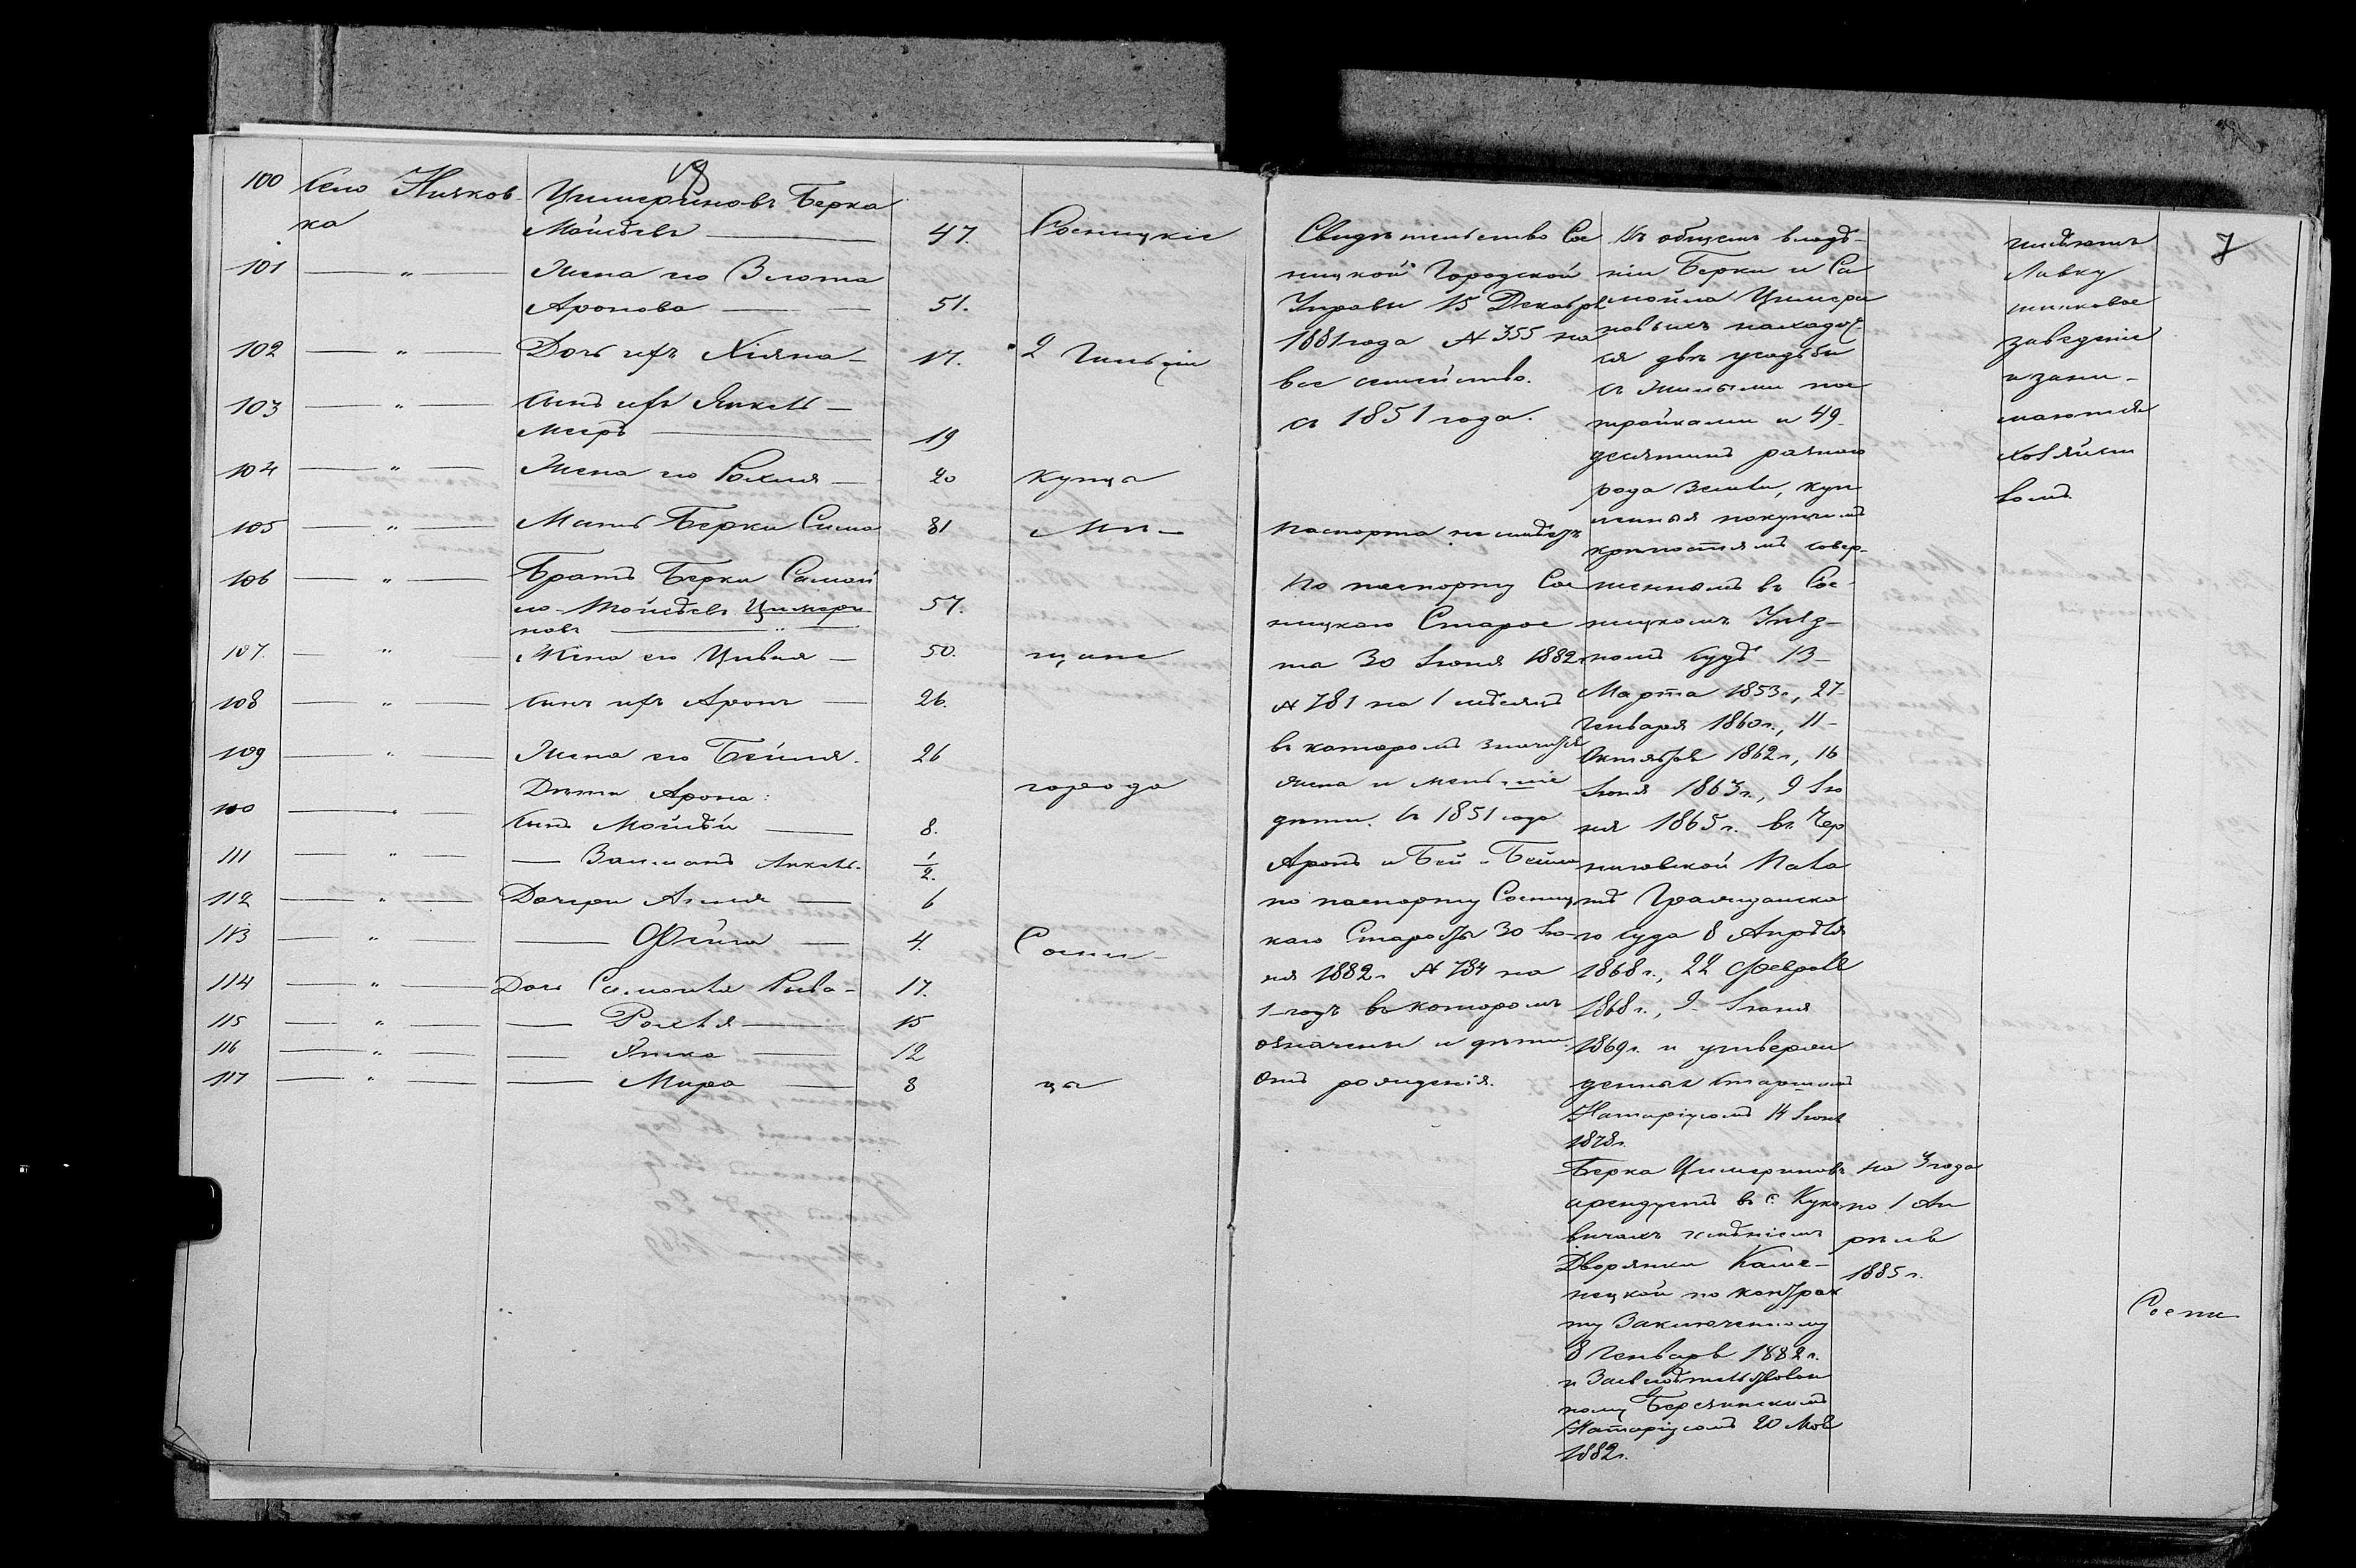 19
100 Село Нияков-
ка
Цимериновъ Берка
Мойсѣевъ — 47. Сосницкіе
101 — „ — Жена его Злота
Аронова — 51.
102 — „ — Дочь ихъ Хіяна — 17. 2 Гильдіи
103 — „ — Сынъ ихъ Янкель —
Мееръ — 19
104 — „ — Жена его Рохля — 20 купцы
105 — „ — Мать Берки Сима 81 Мѣ-
106 — „ — Братъ Берки Самой
ло-Мойсѣевъ Цимери-
новъ — „ — 57.
107. — „ — Жена его Цивья — 50. щане
108 — „ — Сынъ ихъ Аронъ — 26.
109 — „ — Жена его Бейля. 26
Дѣти Арона: города
100 — „ — Сынъ Мойсѣй — 8.
111 — „ — — Залманъ Янкель. 1/2.
112 — „ — Дочери 6
113 — „ — — Фейга — 4. Сосни-
114 — „ — Дочь Самойла Рива — 17.
115 — „ — — Рохля — 15
116 — „ — — 12
117 — „ — — Мира — 8 цы
7
Свидѣтельство Сос
ницкой Городской
Управы 15 Декабря
1881 года № 355 на
все семейство.
съ 1851 года.
Паспорта не имѣетъ
По паспорту Сос
ницкаго Старос
та 30 Іюня 1882г.
№ 781 на 1 мѣсяцъ
въ которомъ значится
жена и меньшіе
дѣти. Съ 1851 года
Аронъ и Бей - Бейла
по паспорту Сосниц
каго Старосты 30 Ію-
ня 1882г. № 784 на
1 годъ въ которомъ
означены и дѣти.
Отъ рожденія.
Въ общемъ владѣ-
ніи Берки и Са
мойла Цимери
новыхъ находят-
ся двѣ усадьбы
съ жилыми пос
тройками и 49
десятинъ разнаго
рода земли, куп
ленныя по купчимъ
крѣпостямъ совер-
шеннымъ въ Сос-
ницкомъ Уѣзд-
номъ Судѣ 13
Марта 1853г., 27
Генваря 1860г., 11
Октября 1862г., 16
Іюня 1863г., 9 Ію
ня 1865г. въ Чер
ниговской Пала
тѣ Гражданска
го Суда 8 Апрѣля
1868г., 22 Февраля
1868г., 9 Іюня
1869г. и утвержден
денныя Старшимъ
Натаріусомъ 14 Іюня
1878г.
Берка Цимериновъ
арендуетъ въ с. Куко
вичахъ имѣніемъ
Дворянки Каме-
нецкой по контрак
ту заключенному
8 Генваря 1882г.
и Засвидѣтельствован
ному Березинскимъ
Натаріусомъ 20 Мая
1882г.
на 3 года
по 1 Ап
рѣля
1885г.
имѣютъ
Лавку
шинковое
заведеніе
и зани-
маются
хозяйст
вомъ
Сосни